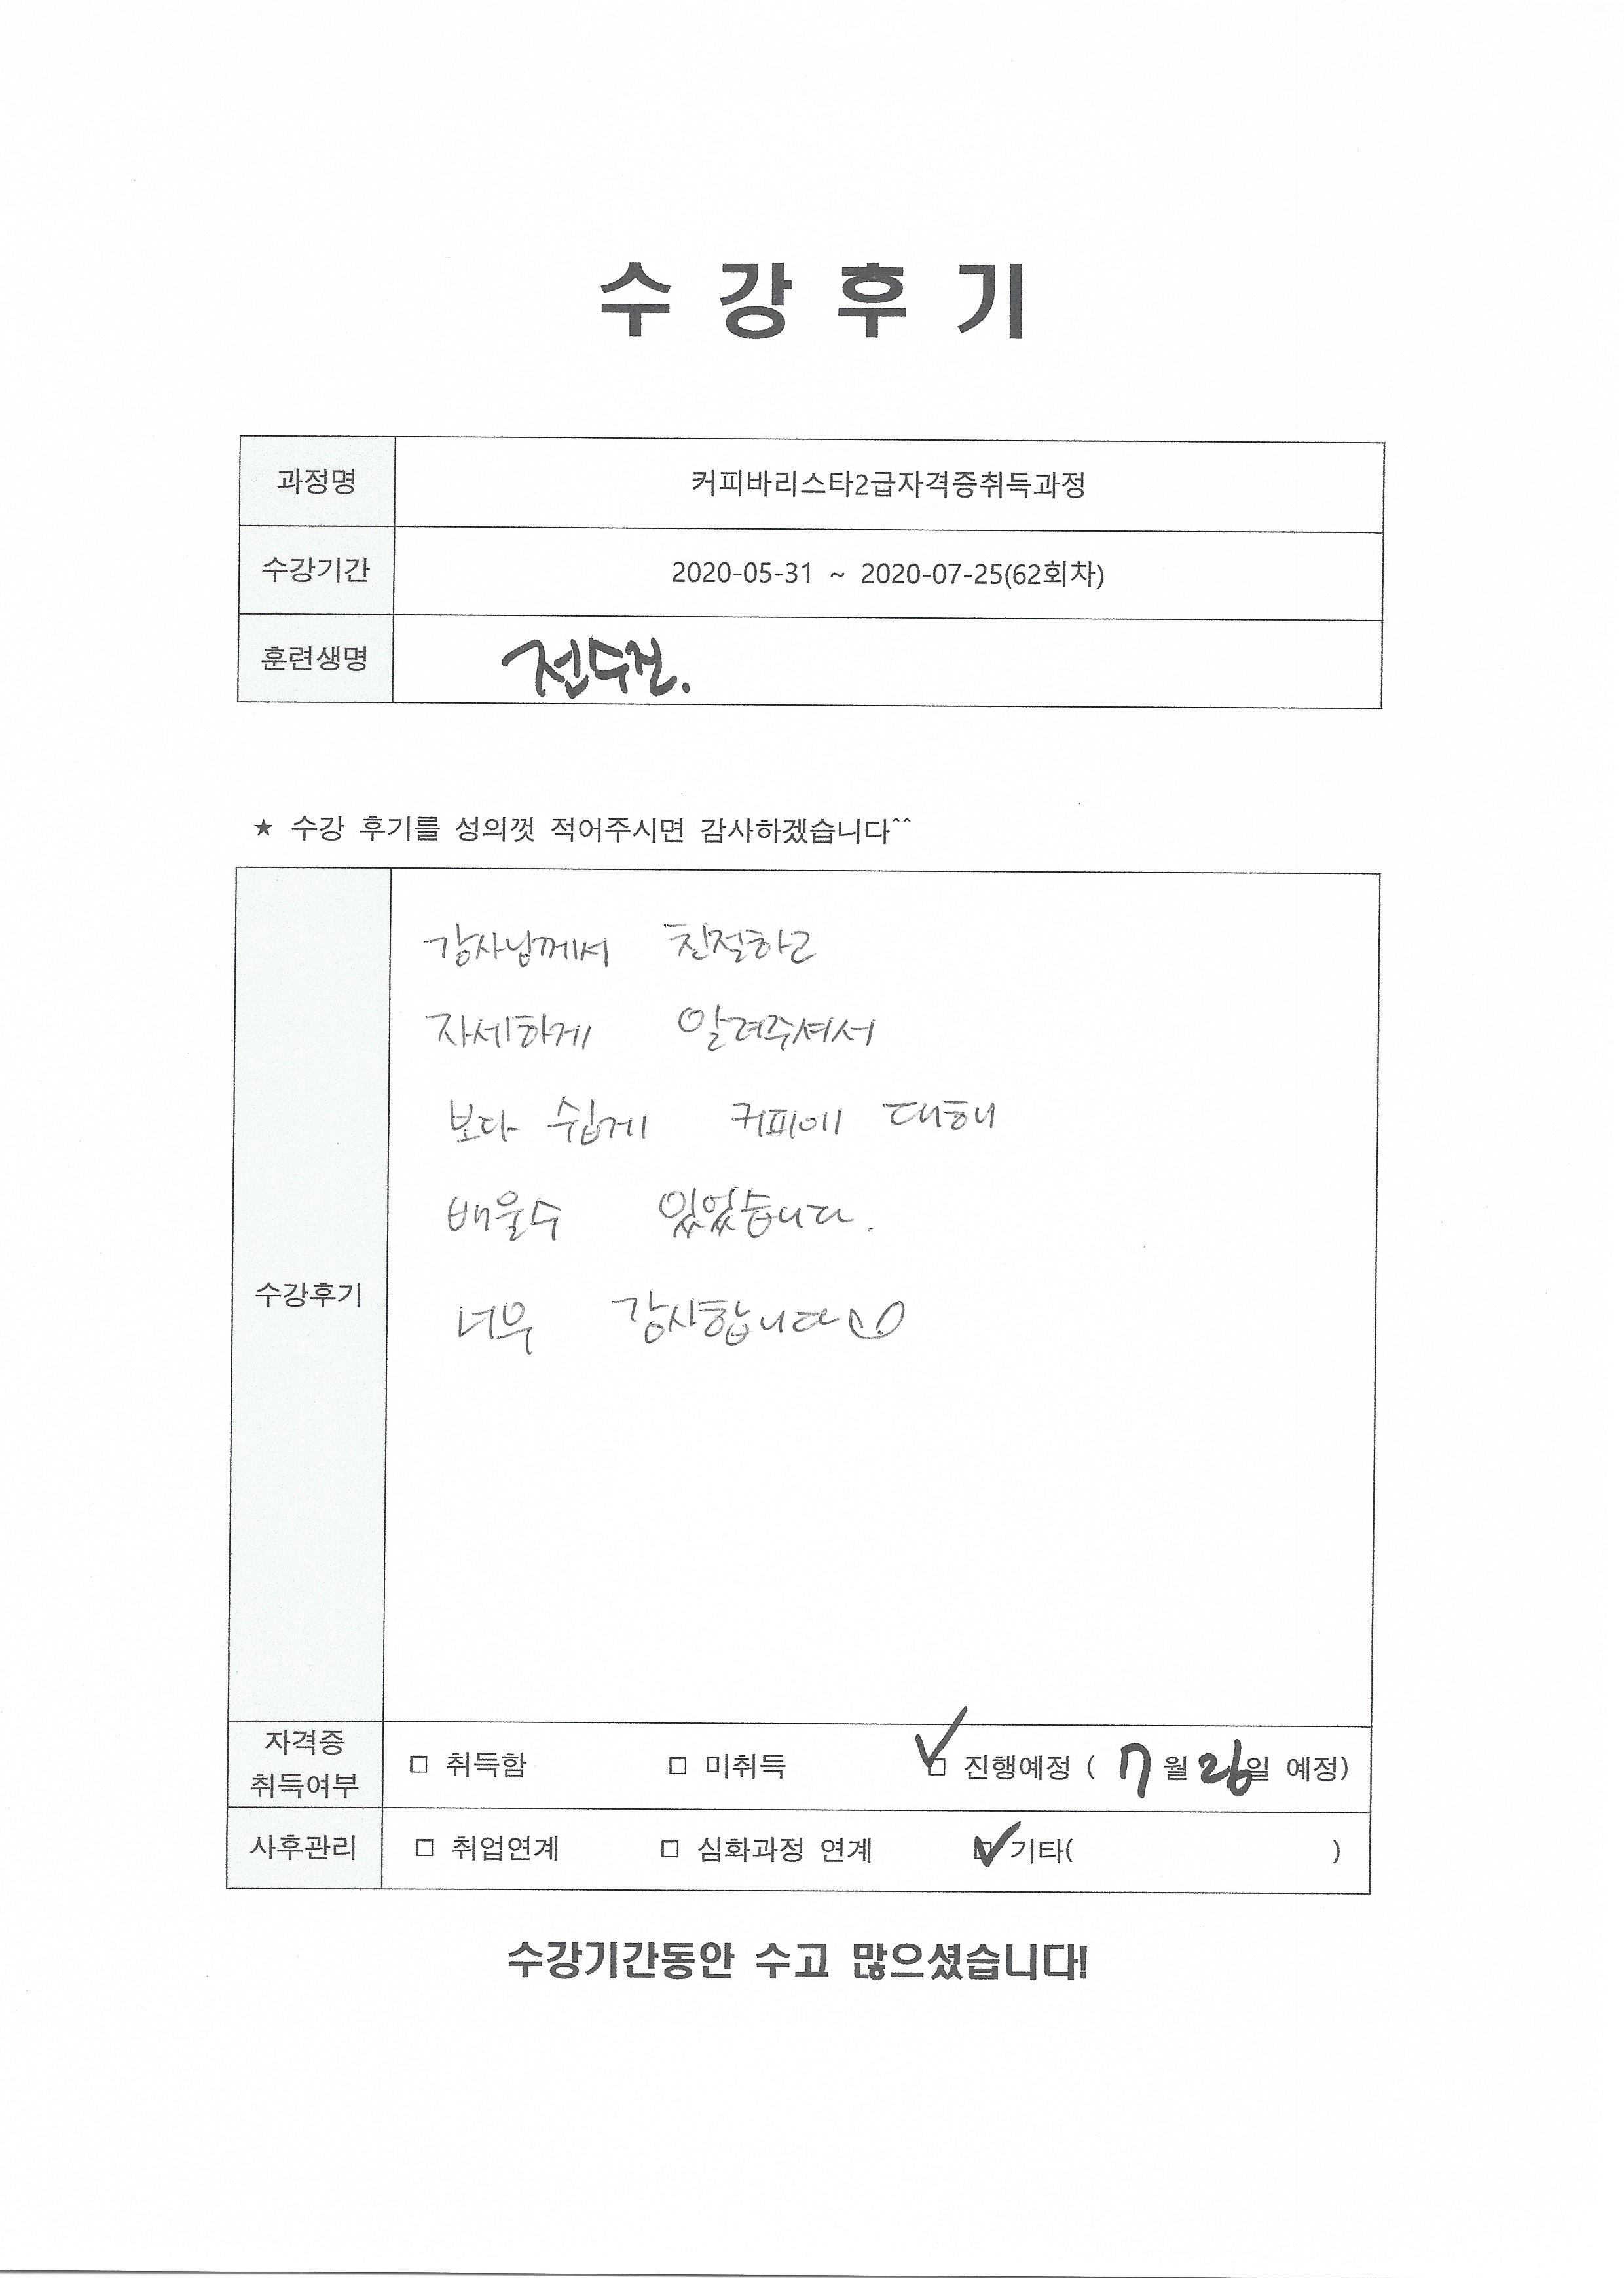 수 강 후 기
과정명 커피바리스타2급자격증취득과정
수강기간 2020-05-31 ~ 2020-07-25(62회차)
훈련생명 전수진.
★ 수강 후기를 성의껏 적어주시면 감사하겠습니다^^
강사님께서 친절하고
자세하게 알려주셔서
보다 쉽게 커피에 대해
배울수 있었습니다.
너무 감사합니다
수강후기
자격증
취득여부
□ 취득함 □ 미취득 □ 진행예정 ( 7월 26일 예정)
사후관리 □ 취업연계 □ 심화과정 연계 □ 기타( )
수강기간동안 수고 많으셨습니다!